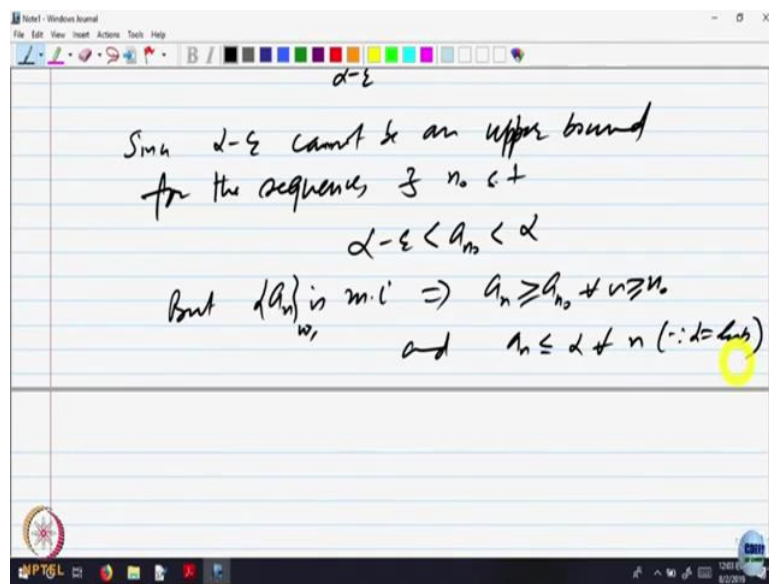 Note1 - Windows Journal
File Edit View Insert Actions Tools Help
B I
α-ε
Sinu α-ε cannot be an upper bound
for the sequences ∃ n₀ s.t
α-ε < aₙ₀ < α
But {aₙ} is m.i ⇒ aₙ ≥ aₙ₀ ∀ n ≥ n₀
and aₙ ≤ α ∀ n (∵ α = lub)
NPTEL
8/2/2019